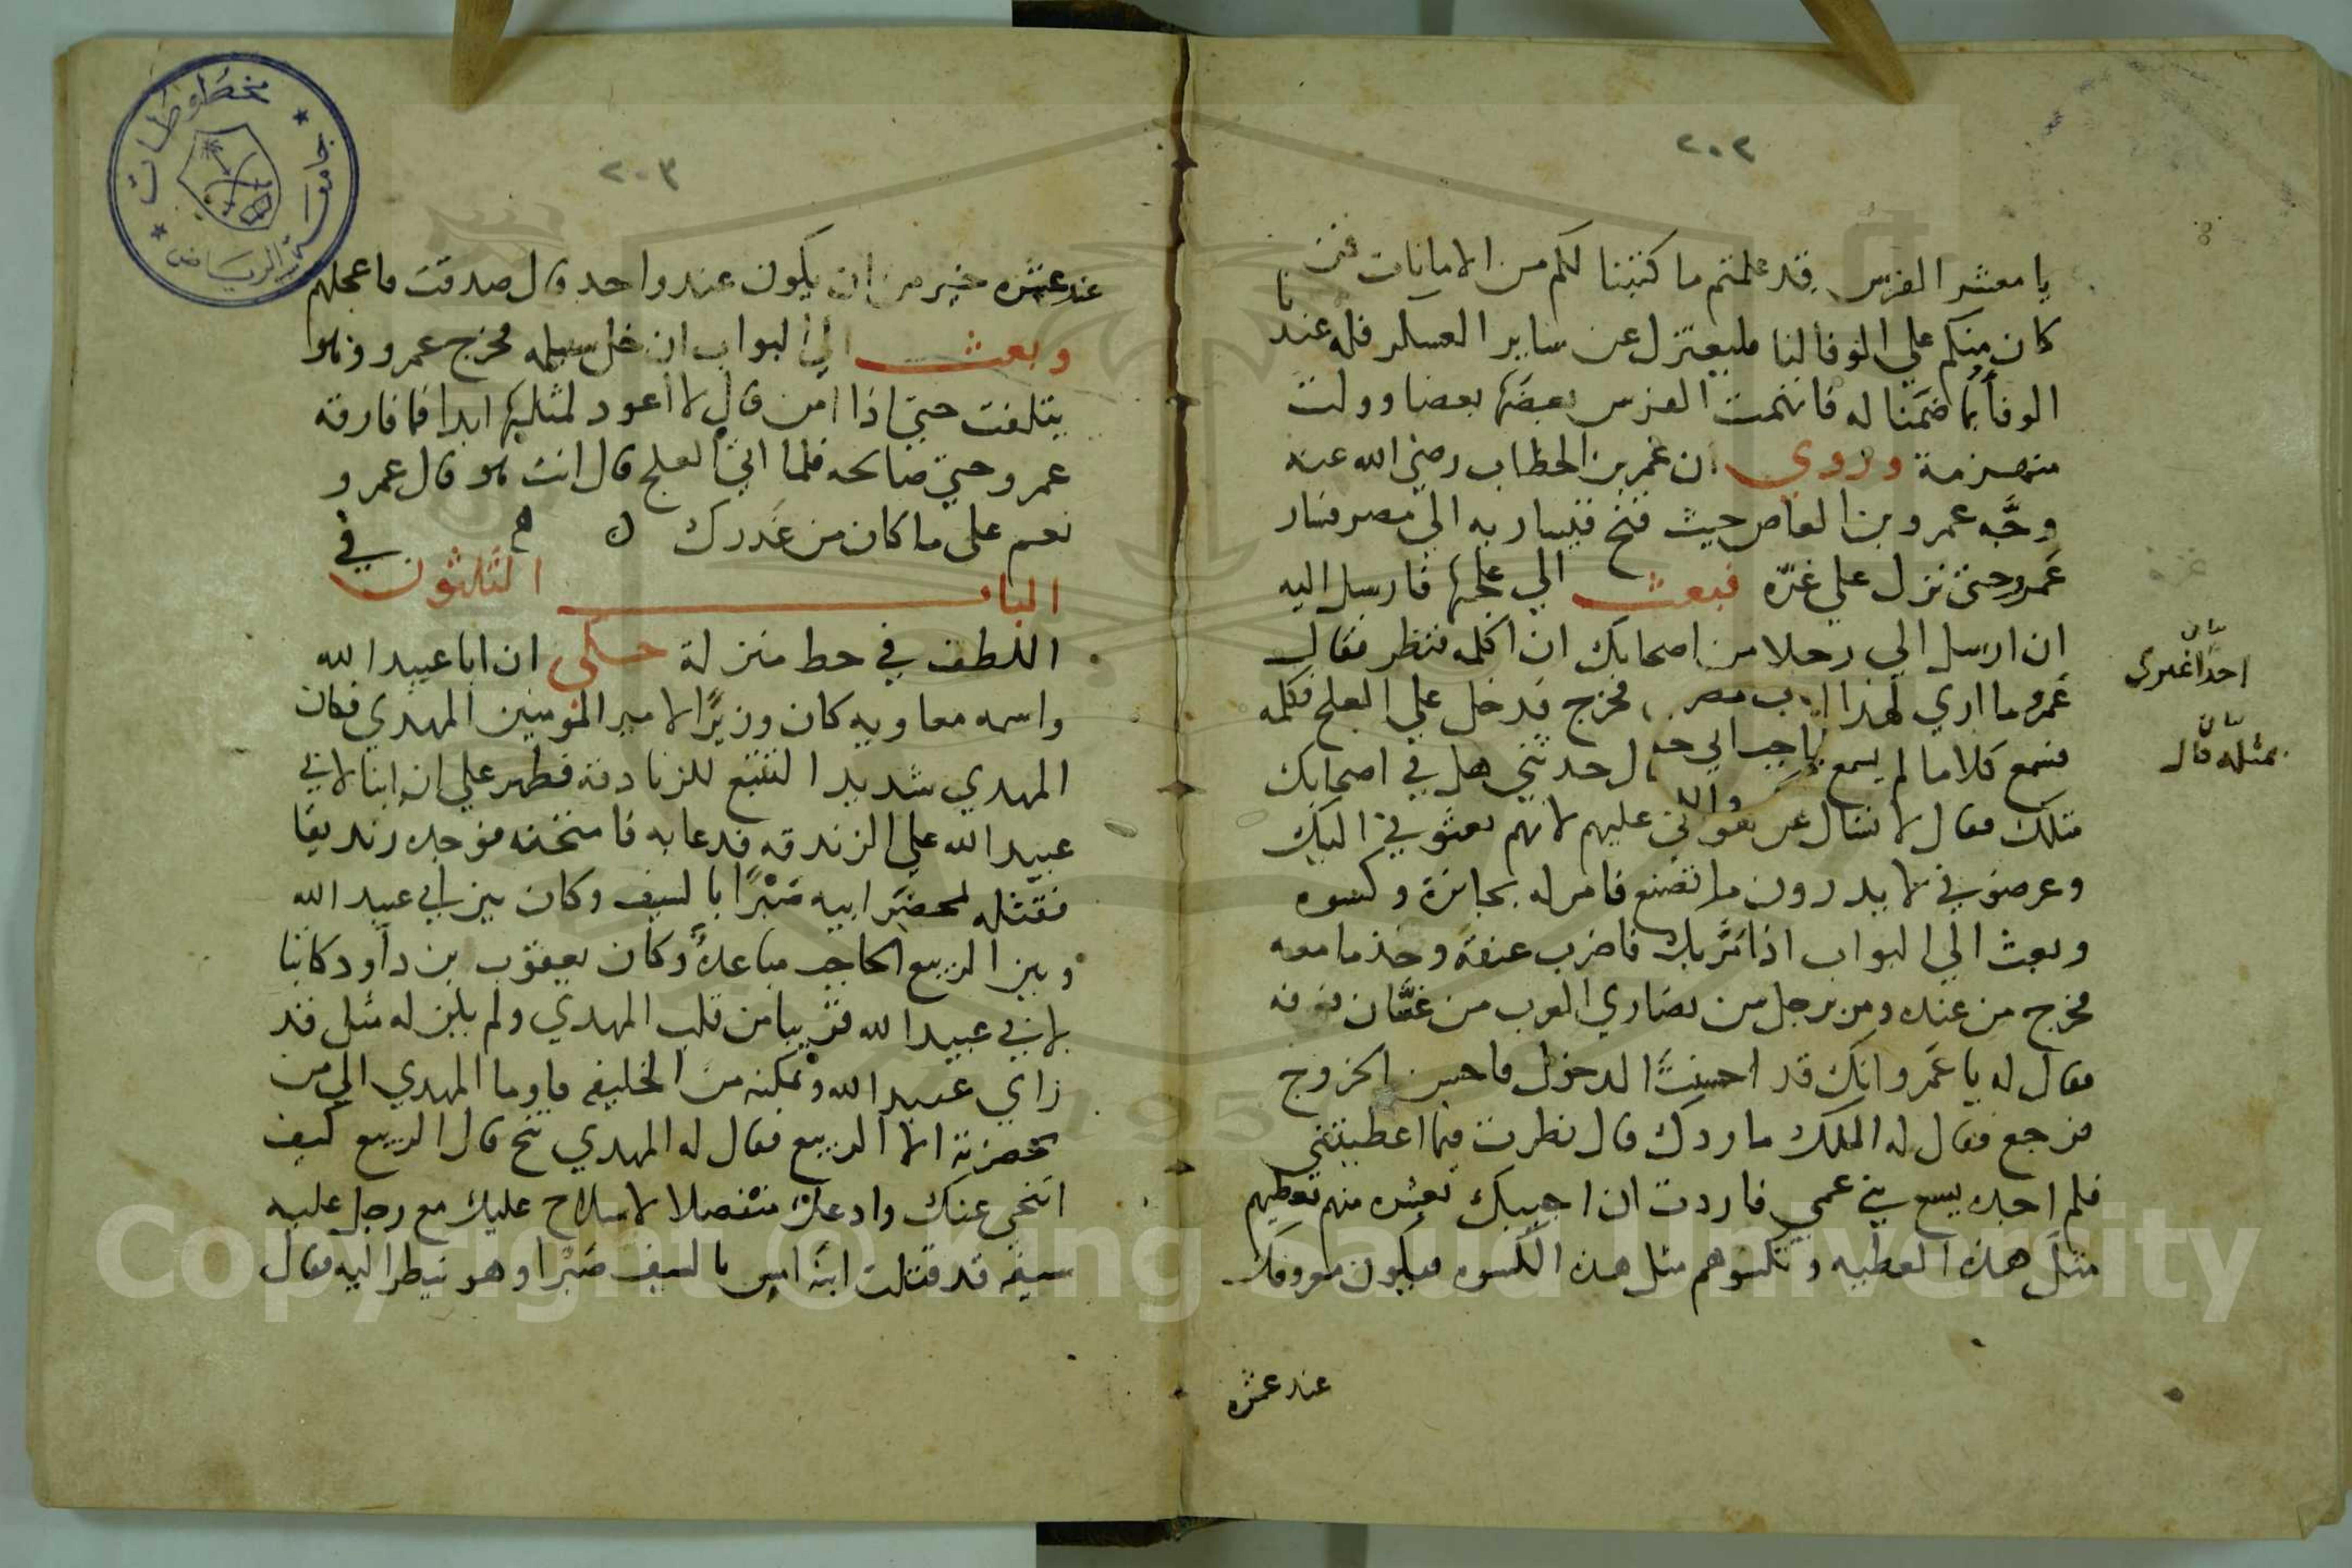 ٢٠٢
يا معشر الفرس قد علمتم ما كتبنا لكم من الامانات فمن
كان منكم علي الوفا لنا فليعتزل عن ساير العسكر فله عندنا
الوفأ بما ضمنا له فاتهمت الفرس بعضها بعضا وولت
منهزمة وروي ان عمر بن الخطاب رضي الله عنه
وجَّه عمرو بن العاص حيث فتح قيساريه الي مصر فسار
عَمرو حتى نزل علي غزّه فبعث الي علجها فارسل اليه
ان ارسل الي رجلا من اصحابك ان اكلمه فنظر فقال
عَمرو ما اري لهذا فخرج فدخل علي العلج فكلمه
احدًا غيري
فسمع كلاما لم يسمع حدثني هل في اصحابك
بمثله قال
مثلك فقال لا تسال عن هواني عليهم لانهم بعثوني اليك
وعرضوني لا يدرون ما تصنع فامر له بجايزة وكسوه
وبعث الي البواب اذا مَرّ بك فاضرب عنقه وخذ ما معه
فخرج من عنده ومر برجل من نصاري العرب من غسَّان فعرفه
فقال له يا عَمرو انك قد احسنتَ الدخول فاحسن الخروج
فرجع فقال له الملك ما ردك قال نظرت فيما اعطيتني
فلم اجده يسع بني عمي فاردت ان اجيبك بعشره منهم تعطيهم
مثل هذه العطيه وتكسوهم مثل هذه الكسوه فيكون معروفك
عند عشره
٢٠٣
عند عشره خير من ان يكون عند واحد قال صدقت فاعجلهم
وبعث الي البواب ان خل سبيله فخرج عمرو وهو
يتلفت حتي اذا امن قال لا اعود لمثلها ابدا فما فارقه
عمرو حتي صالحه فلما اتي العلج قال انت هو قال عمرو
نعم على ما كان من غدرك ه م
الباب الثلثون في
اللطف في حط منزلة حكى ان ابا عبيد الله
واسمه معاويه كان وزيرًا لامير المومنين المهدي فكان
المهدي شديد التتبع للزنادقه فظهر علي ان ابنا لابي
عبيد الله علي الزندقه فدعا به فامتحنه فوجده زنديقا
فقتله بمحضَر ابيه صَبْرًا بالسيف وكان بين ابي عبيد الله
وبين الربيع الحاجب مباعدةً وكان يعقوب بن داود كاتبا
لابي عبيد الله قريبا من قلب المهدي ولم يكن له مثل قدر
راي عبيد الله وتمكنه من الخليفه فاوما المهدي الي من
بحضرته الا الربيع فقال له المهدي تنح قال الربيع كيف
اتنحي عنك وادعك منفصلا لا سلاح عليك مع رجل عليه
سيفه قد قتلت ابنه امس بالسيف صَبْرا وهو ينظر اليه فقال
مخطوطات
جامعة الرياض
Copyright © King Saud University